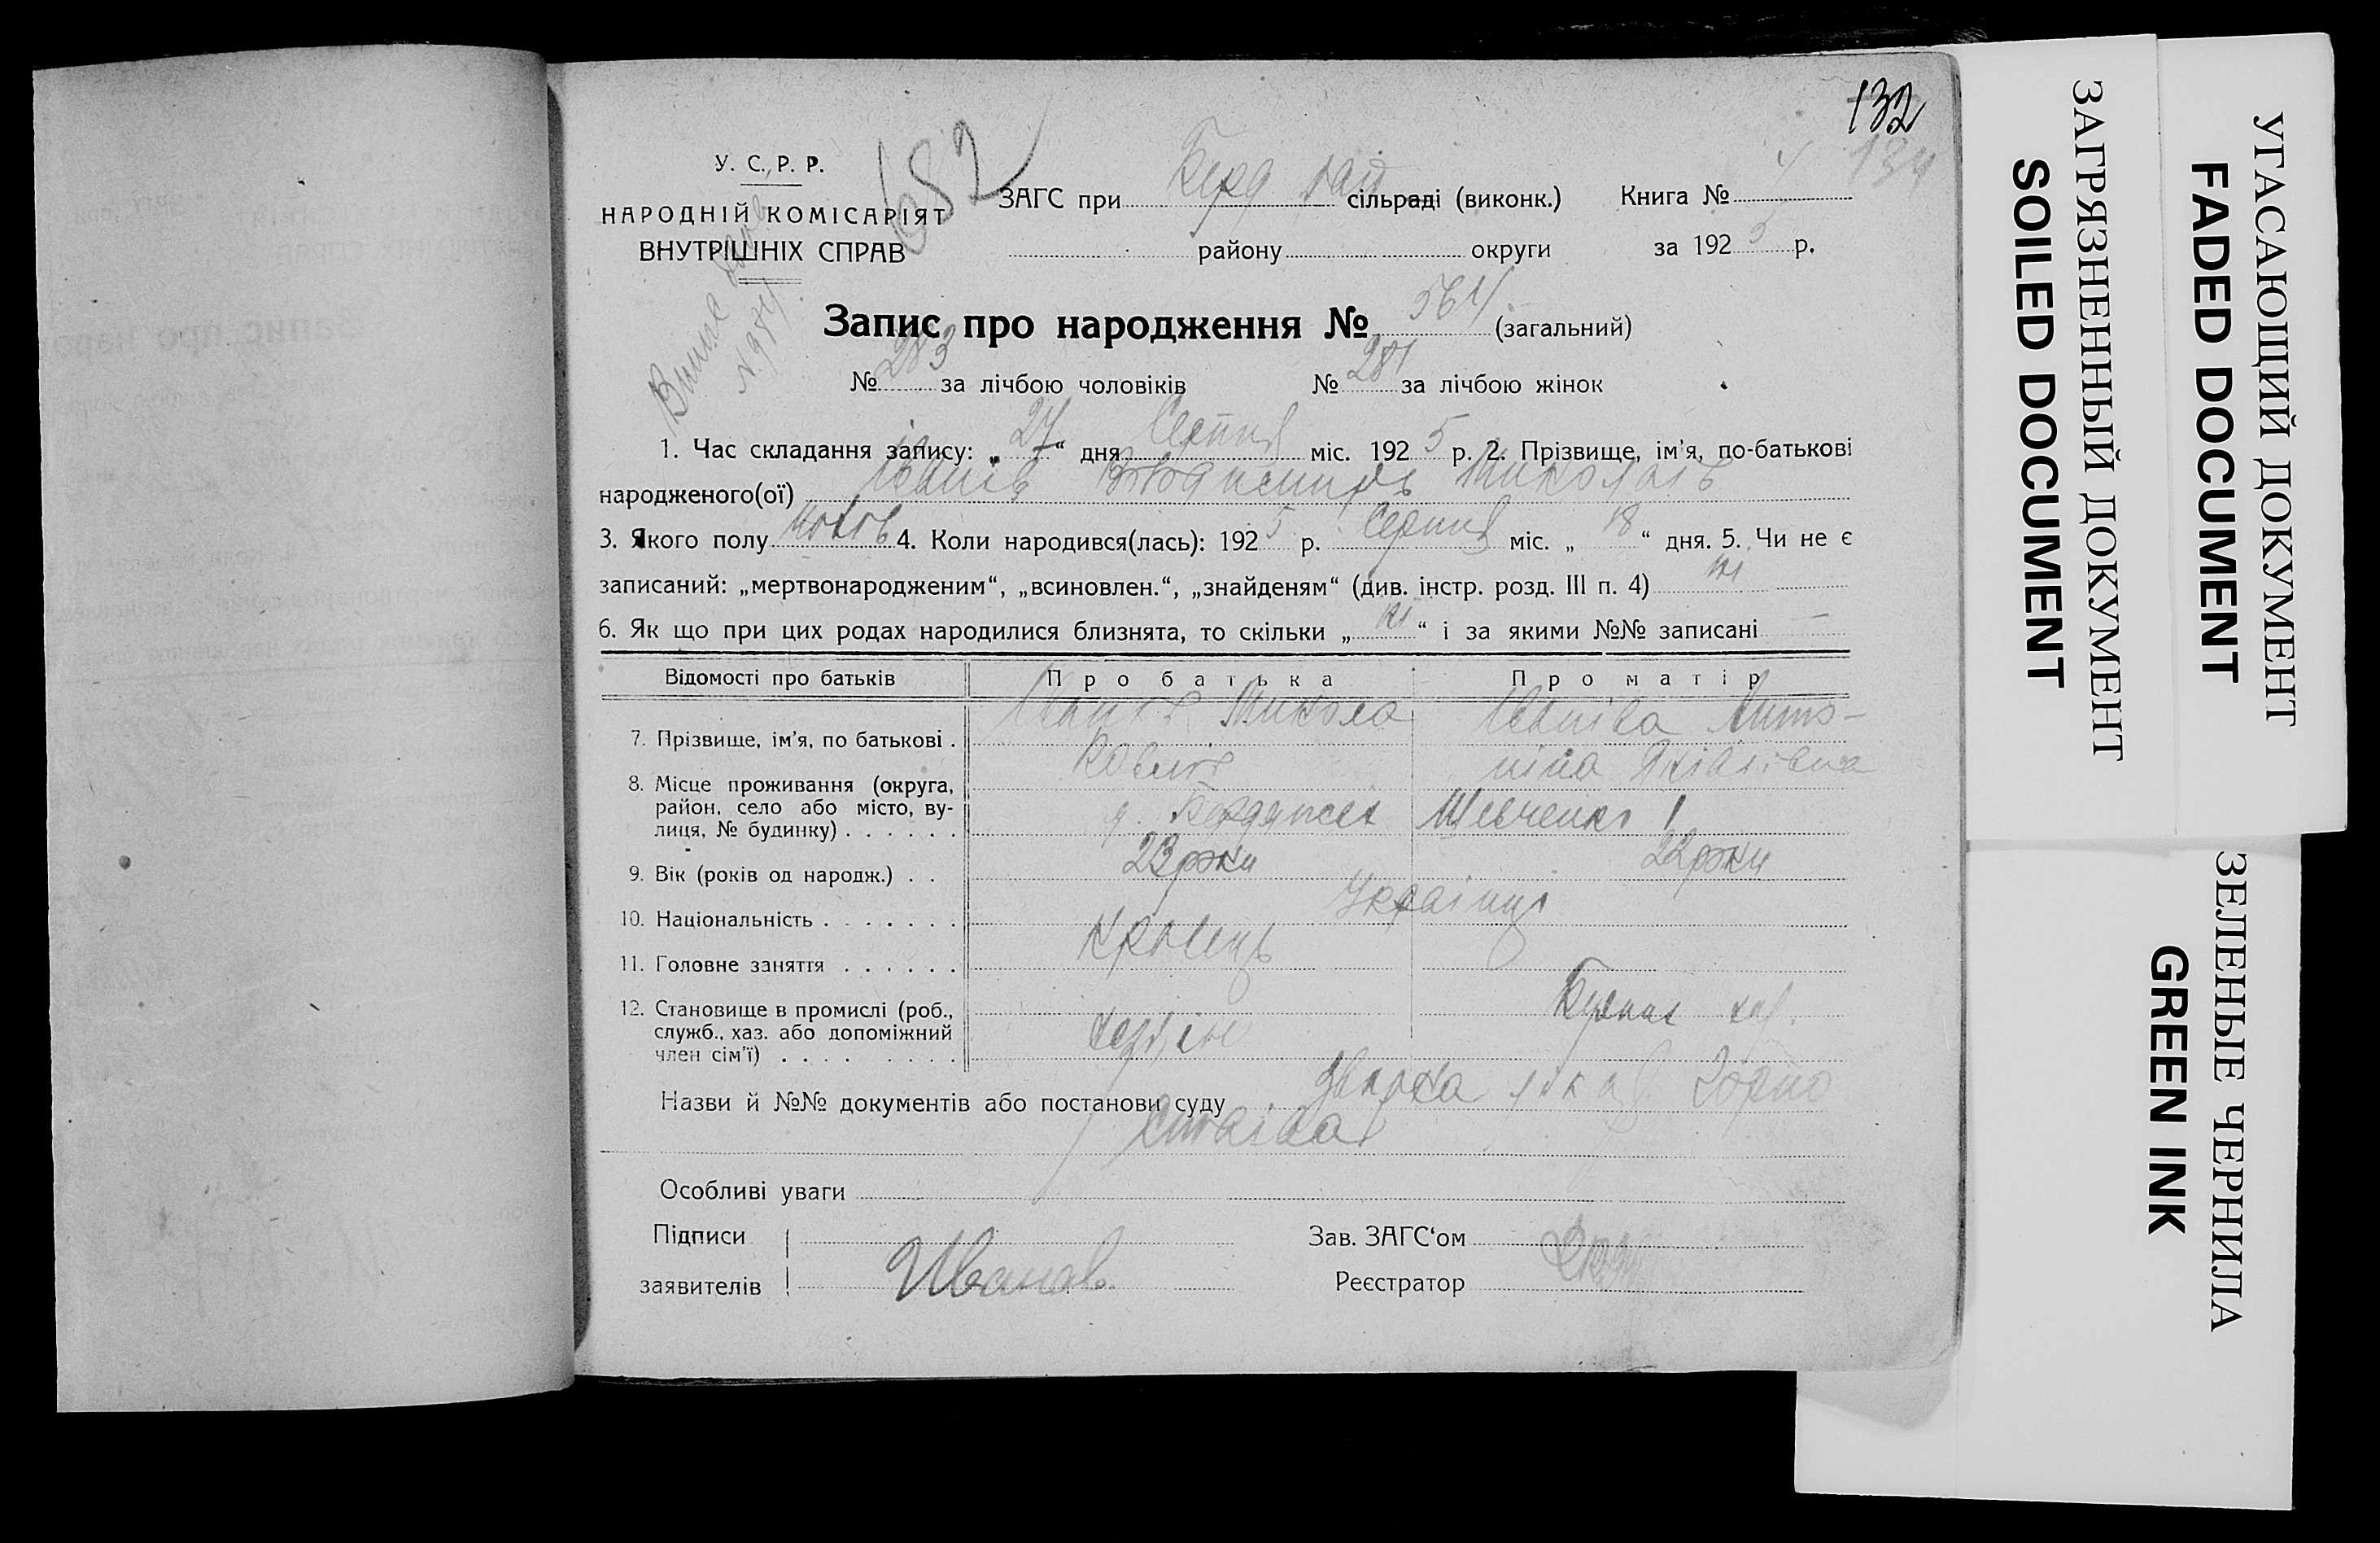 132
134
682
У. С. Р. Р.
НАРОДНІЙ КОМІСАРІЯТ
ВНУТРІШНІХ СПРАВ
ЗАГС при Берд рай сільраді (виконк.) Книга № 4
району округи за 1925 р.
Запис про народження № 564 (загальний)
№ 283 за лічбою чоловіків № 281 за лічбою жінок
1. Час складання запису: „27“ дня Серпня міс. 1925 р. 2. Прізвище, ім'я, по-батькові
народженого(ої)
3. Якого полу 4. Коли народився(лась): 1925 р. Серпня міс. „18“ дня. 5. Чи не є
записаний: „мертвонародженим“, „всиновлен.“, „знайденям“ (див. інстр. розд. III п. 4) ні
6. Як що при цих родах народилися близнята, то скільки „ні“ і за якими №№ записані —
Відомості про батьків Про батька Про матір
7. Прізвище, ім'я, по батькові . Микола Анто-
ніна
8. Місце проживання (округа,
район, село або місто, ву-
лиця, № будинку) . . . . . . Бердянськ Шевченка 1
9. Вік (років од народж.) . . 23 роки 22 роки
10. Національність . . . . . . . Українці
11. Головне заняття . . . . . . Кравець
12. Становище в промислі (роб.,
служб., хаз. або допоміжний
член сім'ї) . . . . . . . . .
Назви й №№ документів або постанови суду
Особливі уваги
Підписи
заявителів Иванов
Зав. ЗАГС‘ом
Реєстратор
УГАСАЮЩИЙ ДОКУМЕНТ
FADED DOCUMENT
ЗАГРЯЗНЕННЫЙ ДОКУМЕНТ
SOILED DOCUMENT
ЗЕЛЕНЫЕ ЧЕРНИЛА
GREEN INK